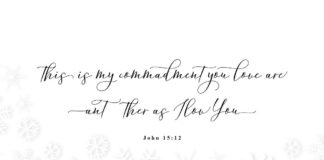 This is my commadment you love are
ant Ther as I low You
John 15:12